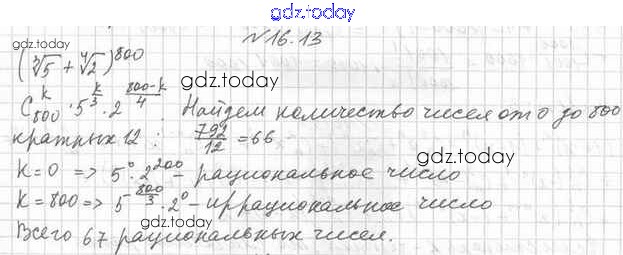 gdz.today
№16.13
(∛5 + ∜2)^800
gdz.today
gdz.today
C_800^k · 5^(k/3) · 2^((800-k)/4). Найдем количество чисел от 0 до 800
кратных 12: 792/12 = 66
gdz.today
K=0 => 5^0 · 2^200 - рациональное число
K=800 => 5^(800/3) · 2^0 - иррациональное число
gdz.today
Всего 67 рациональных чисел.